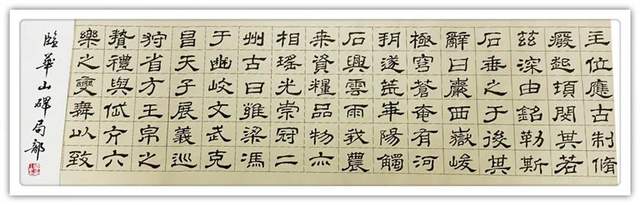 王位應古制脩
癈起頓閔其若
茲深由銘勒斯
石垂之于後其
辭曰巖西嶽峻
極穹蒼奄有河
朔遂荒華陽觸
石興雲雨我農
桒資糧品物亦
相瑤光崇冠二
州古曰雍梁馮
于豳岐文武克
昌天子展義巡
狩省方玉帛之
贄禮與岱亢六
樂之變舞以致
臨華山碑局部